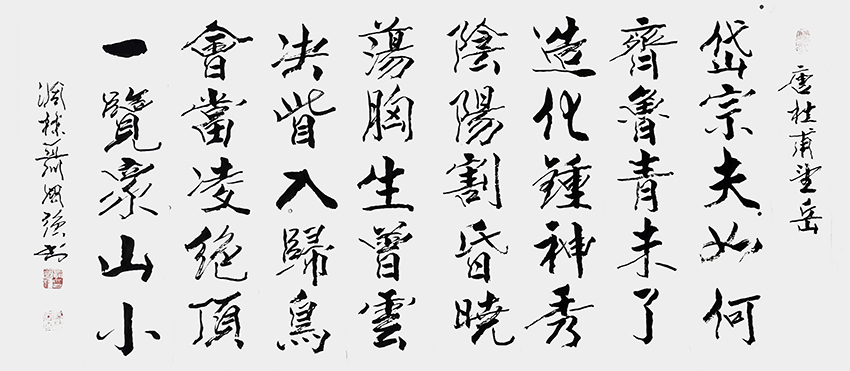 唐杜甫望岳
岱宗夫如何
齊魯青未了
造化鍾神秀
陰陽割昏曉
蕩胸生曾雲
決眥入歸鳥
會當凌絕頂
一覽衆山小
聶國強書